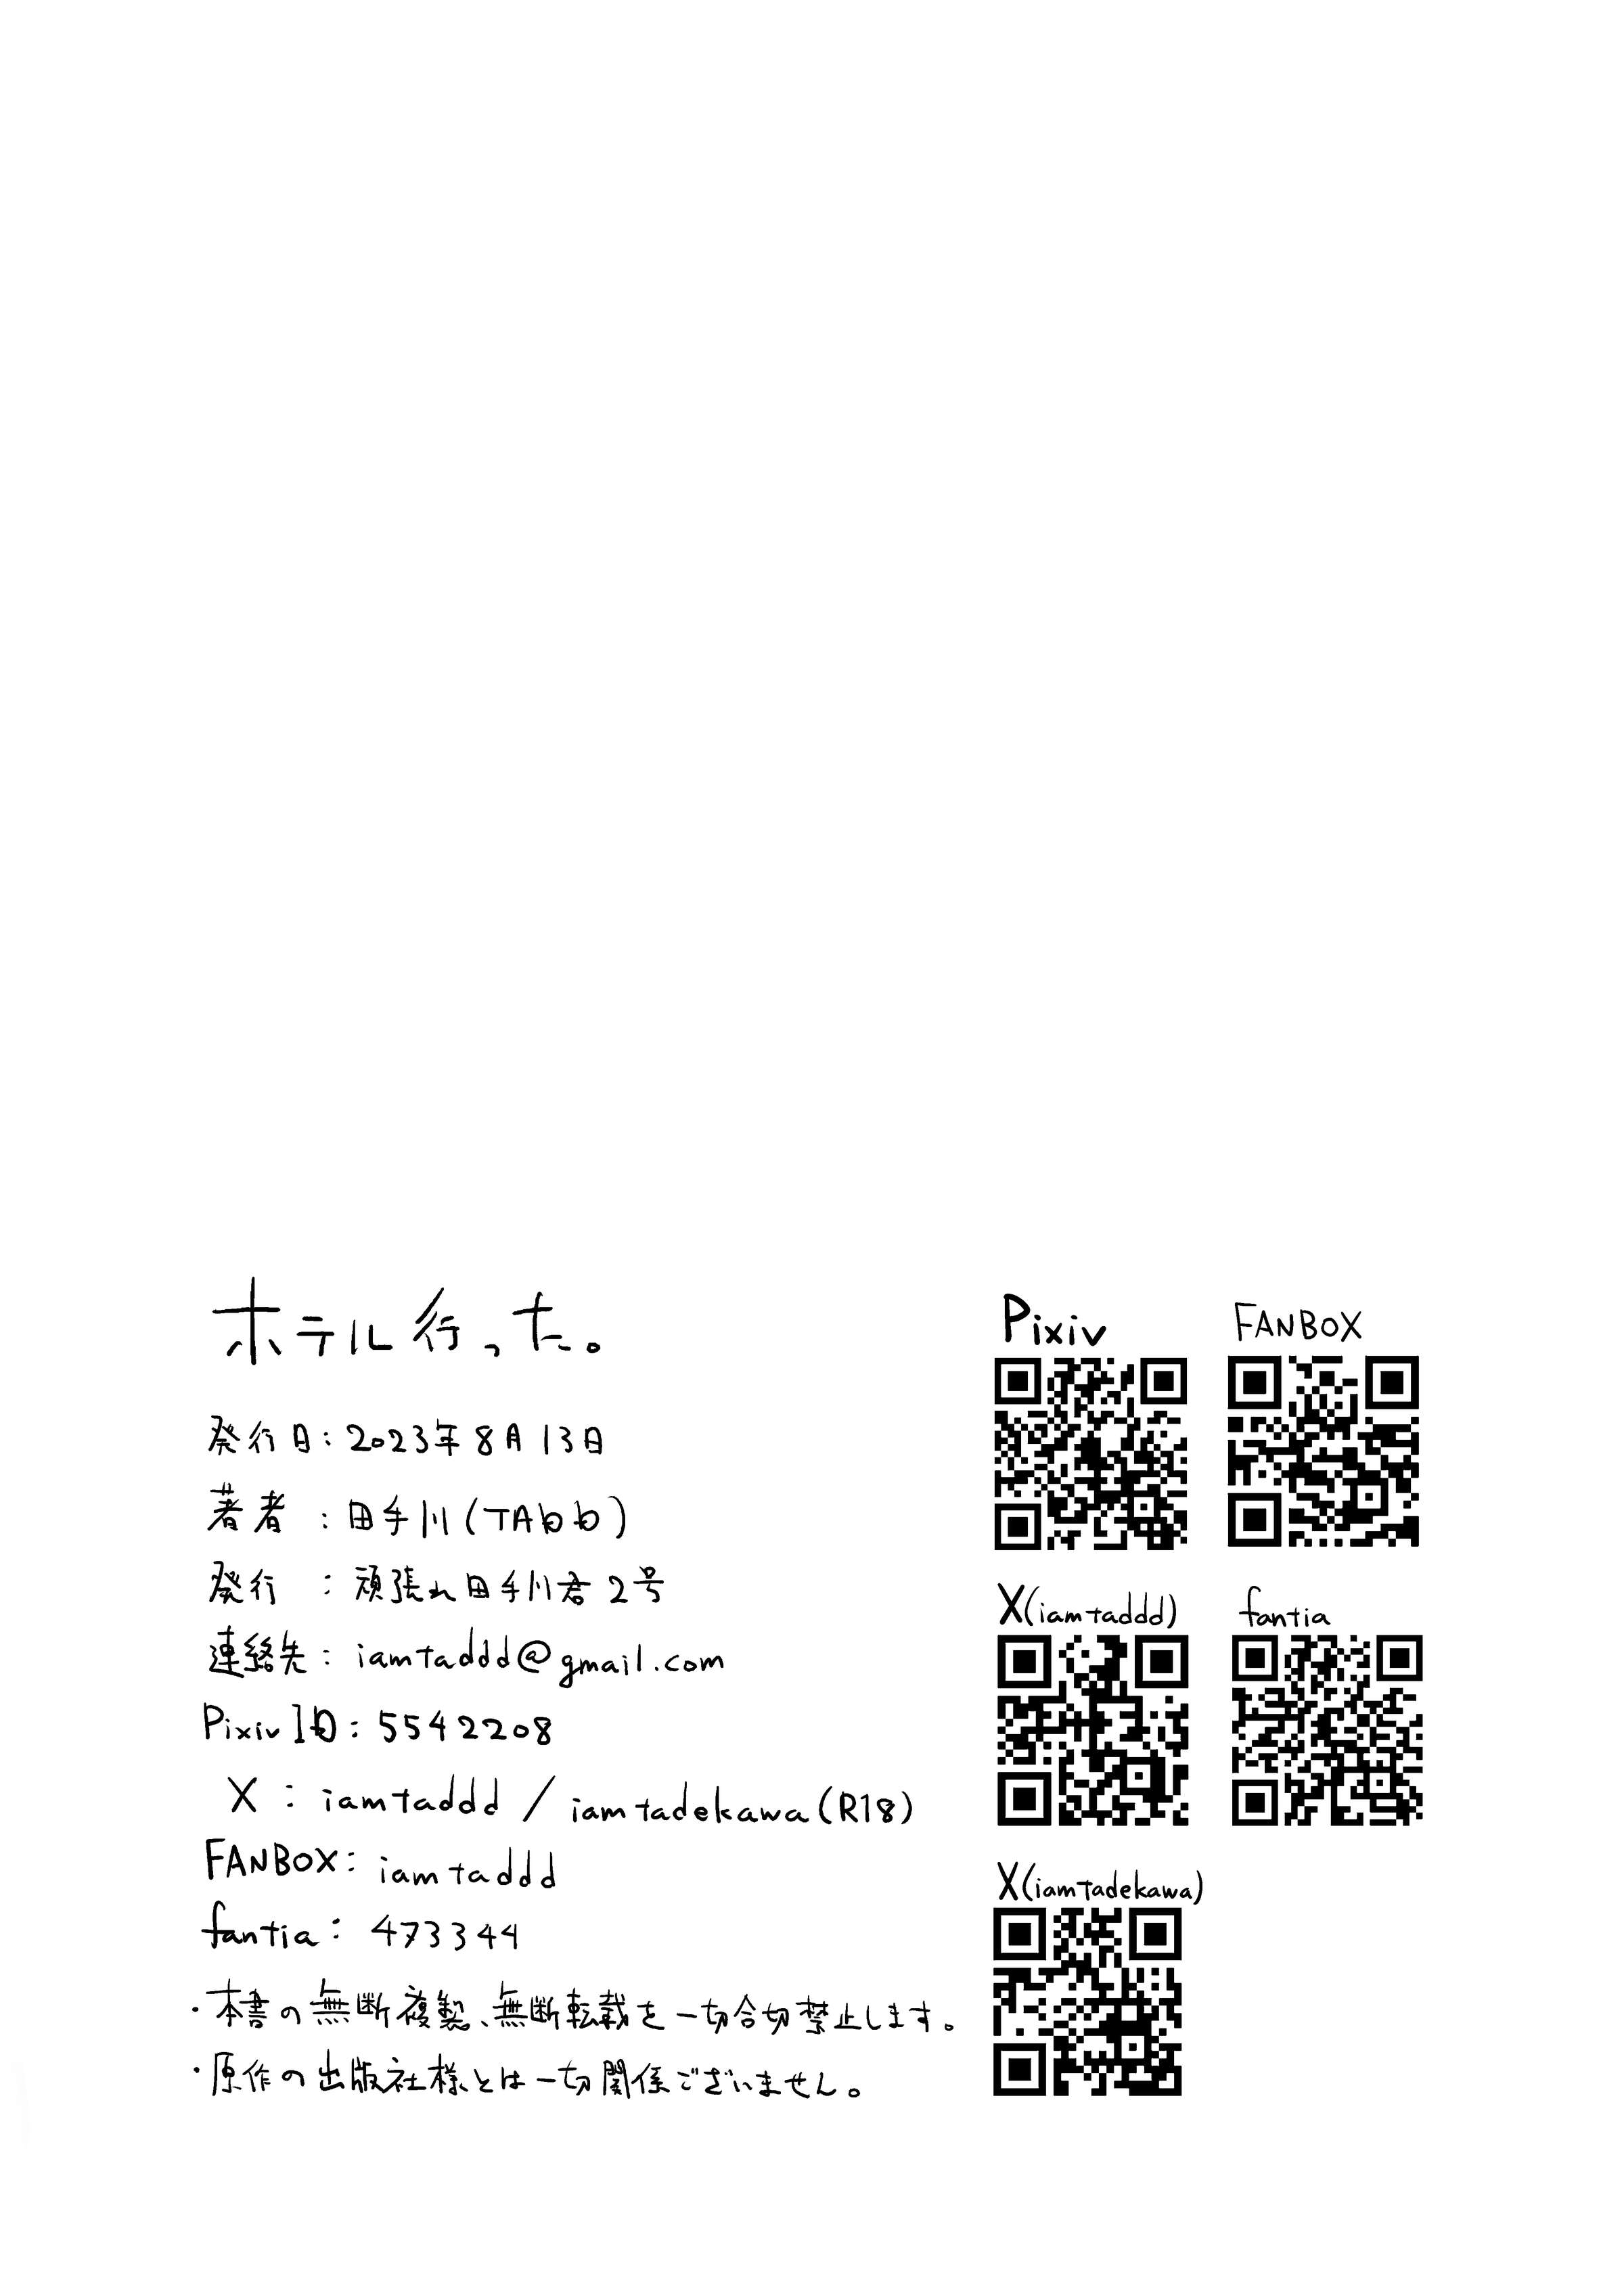 ホテル行った。
発行日:2023年8月13日
著者 :田手川(TADD)
発行 :頑張れ田手川君2号
連絡先:iamtaddd@gmail.com
Pixiv ID:5542208
X:iamtaddd / iamtadekawa(R18)
FANBOX:iamtaddd
fantia:473344
・本書の無断複製、無断転載を一切合切禁止します。
・原作の出版社様とは一切関係ございません。
Pixiv
FANBOX
X(iamtaddd)
fantia
X(iamtadekawa)